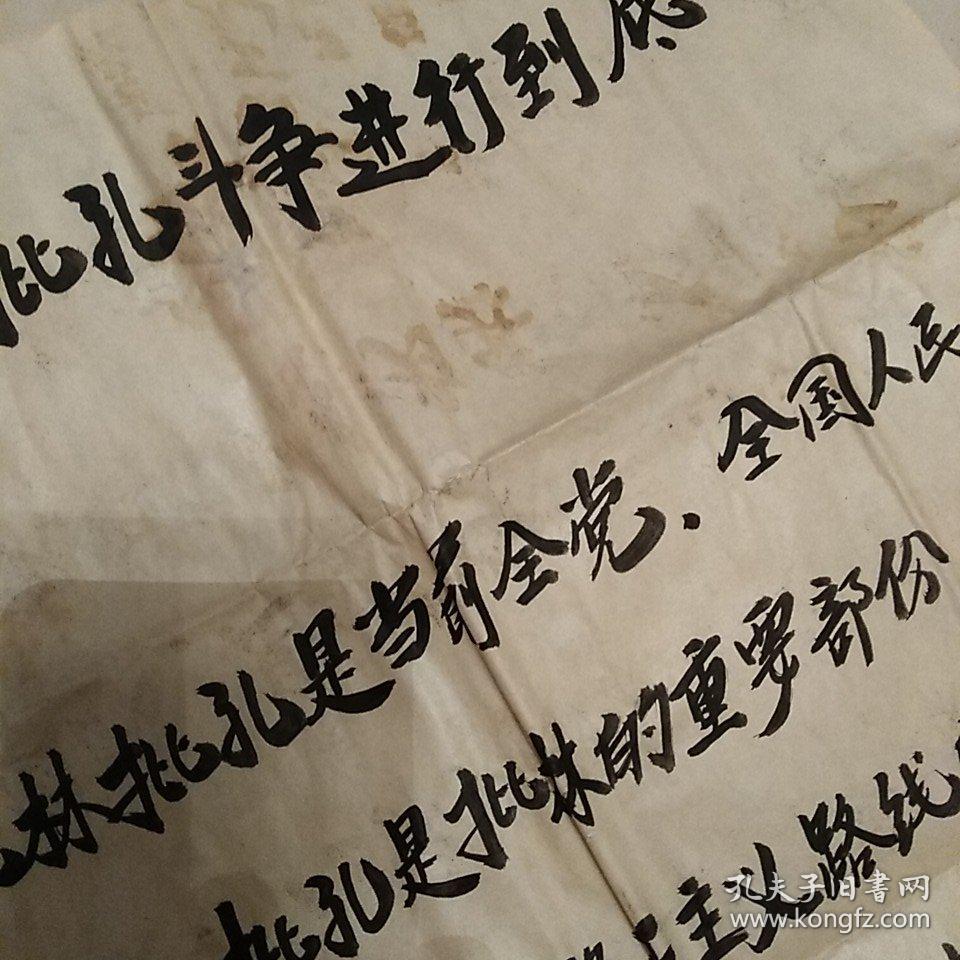 批孔斗争进行到底
林批孔是当前全党、全国人民
批孔是批林的重要部份
主义路线
孔夫子旧書网
www.kongfz.com